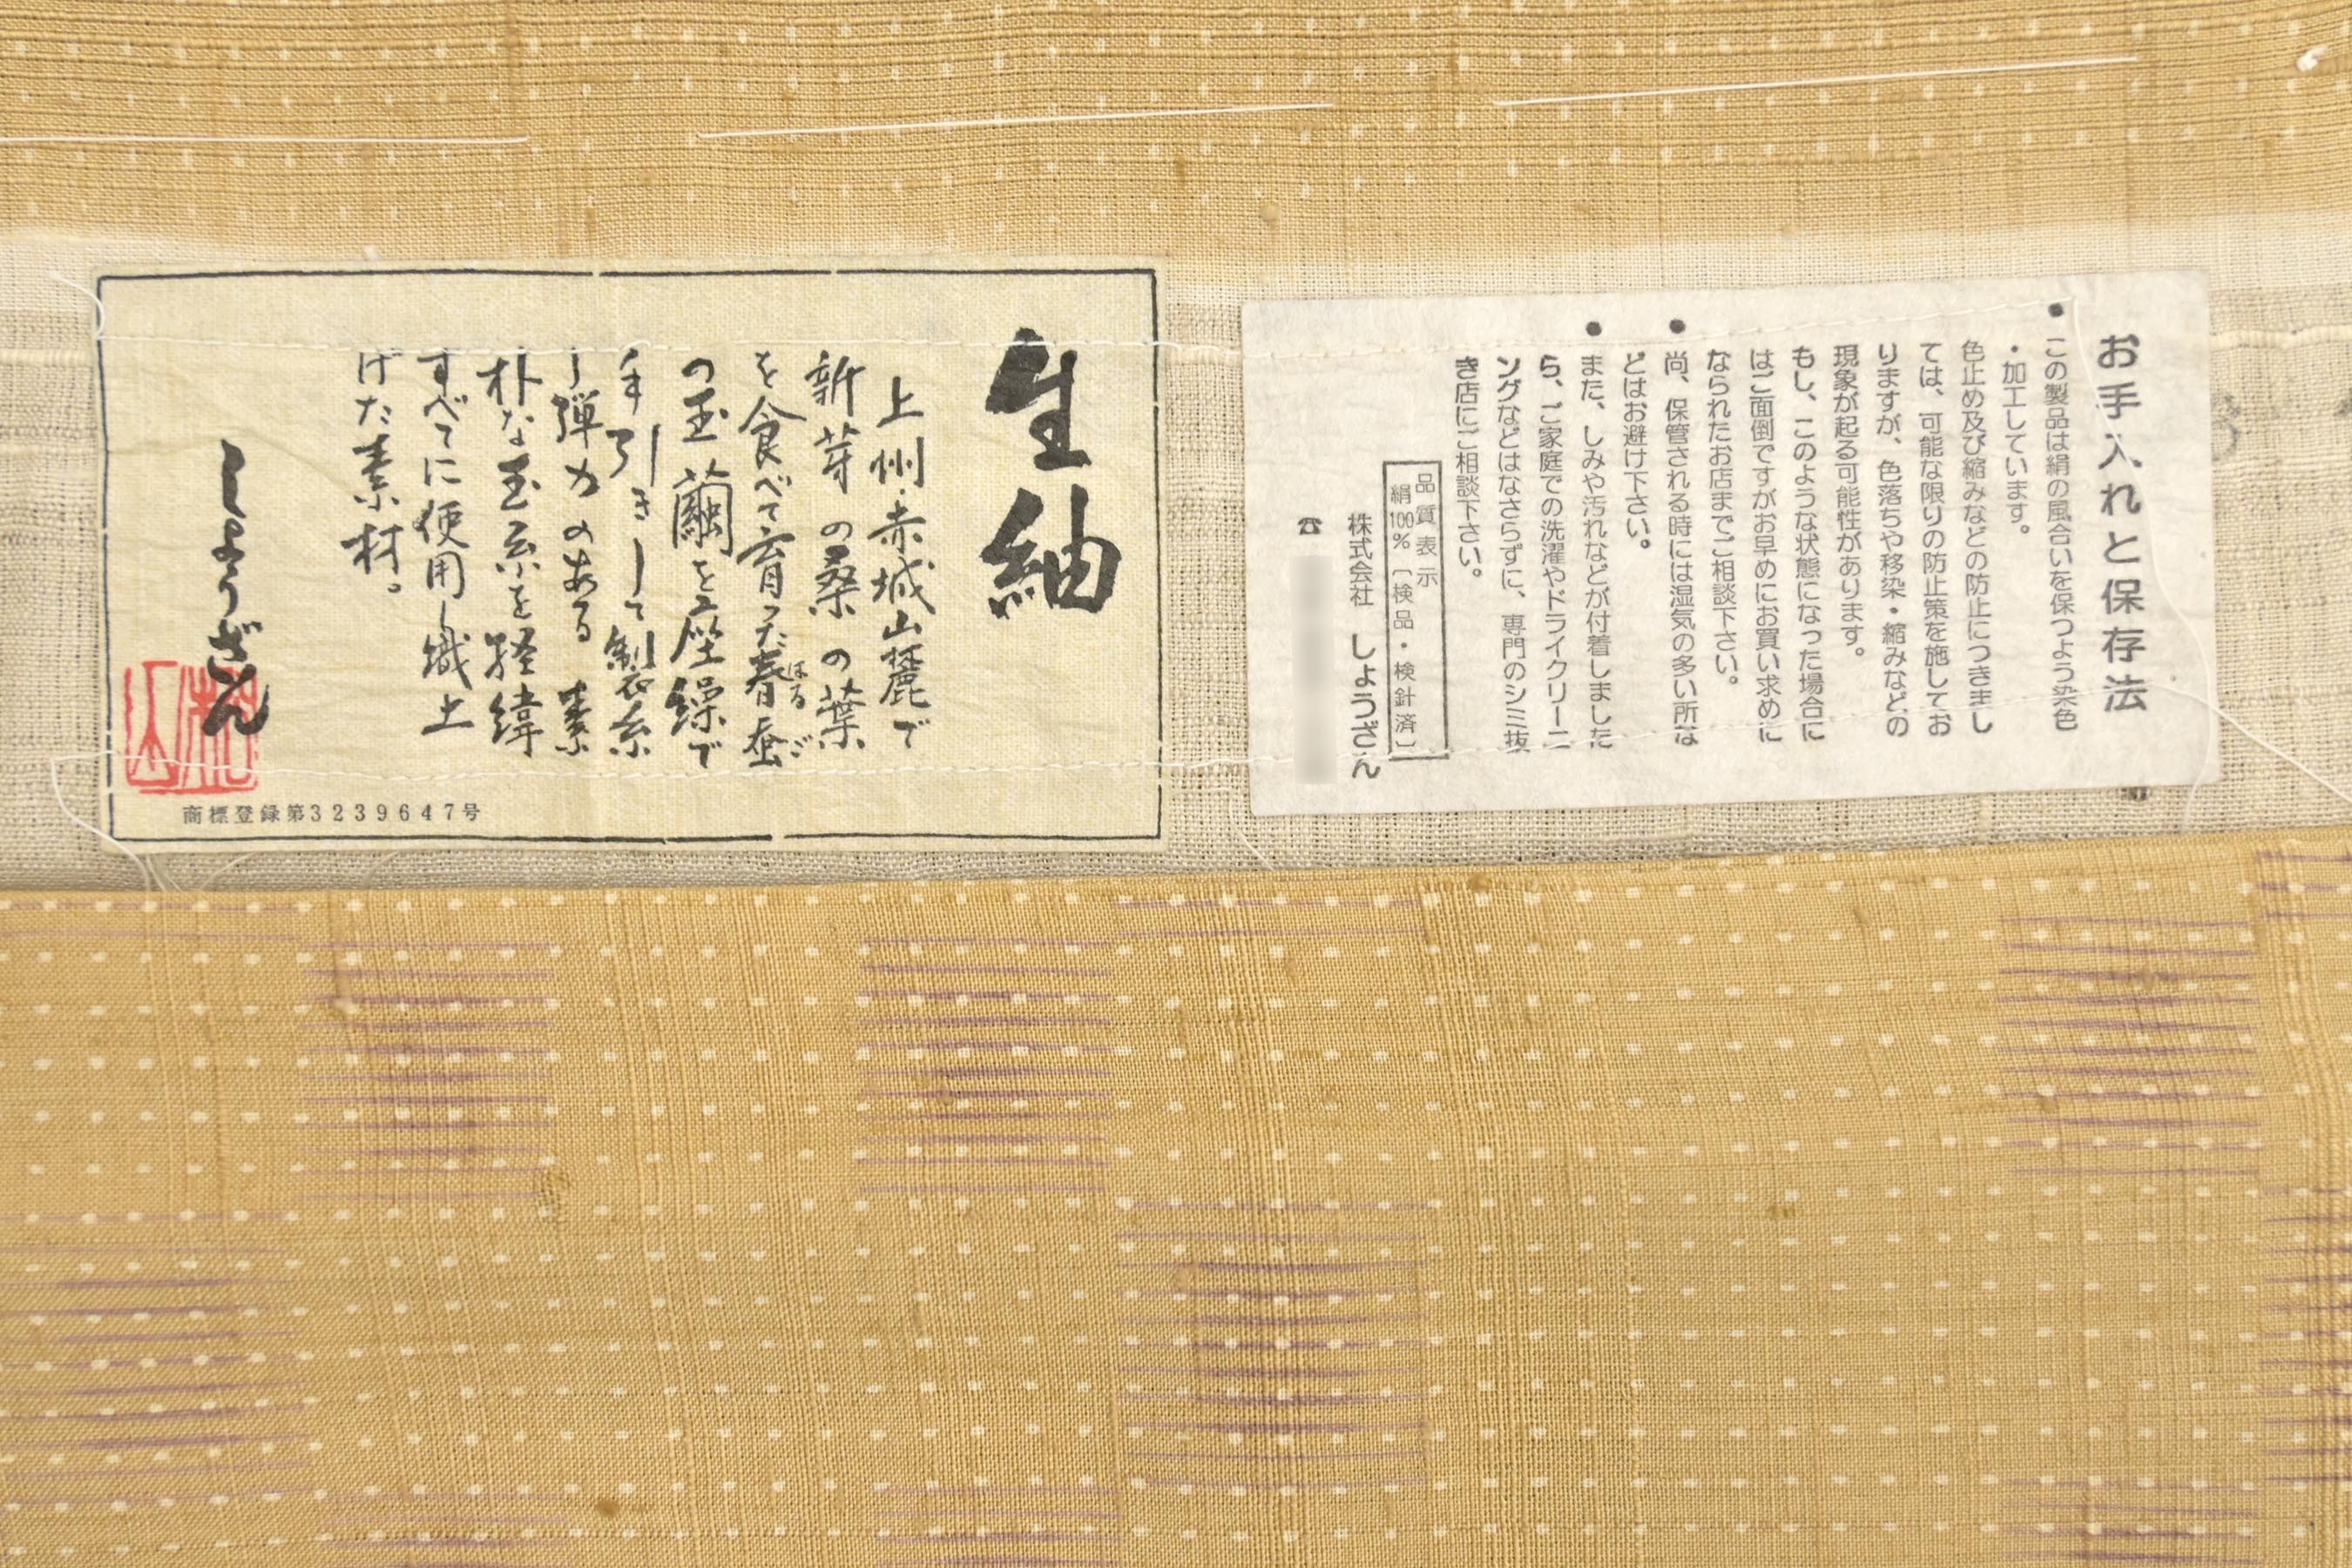 生紬
上州赤城山麓で
新芽の桑の葉
を食べて育った春蚕
はるご
の玉繭を座繰で
手引きして製糸
し弾力のある素
朴な玉糸を経緯
すべてに使用し織上
げた素材。
しょうざん
商標登録第3239647号
お手入れと保存法
●この製品は絹の風合いを保つよう染色
・加工しています。
色止め及び縮みなどの防止につきまし
ては、可能な限りの防止策を施してお
りますが、色落ちや移染・縮みなどの
現象が起る可能性があります。
もし、このような状態になった場合に
はご面倒ですがお早めにお買い求めに
なられたお店までご相談下さい。
●尚、保管される時には湿気の多い所な
どはお避け下さい。
●また、しみや汚れなどが付着しました
ら、ご家庭での洗濯やドライクリーニ
ングなどはなさらずに、専門のシミ抜
き店にご相談下さい。
品質表示
絹100%〔検品・検針済〕
株式会社 しょうざん
☎